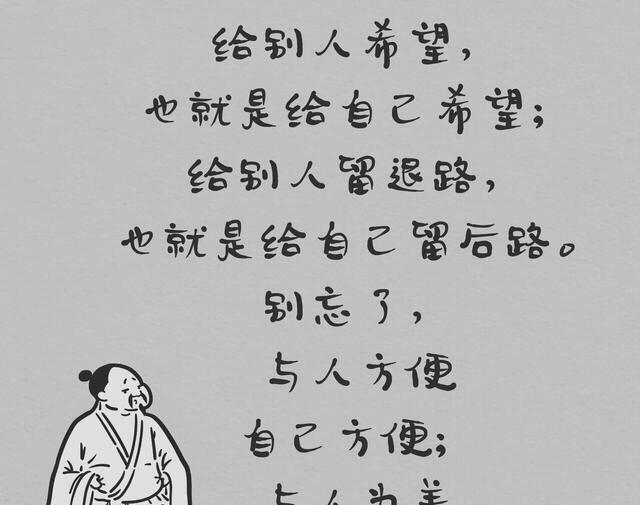 给别人希望，
也就是给自己希望；
给别人留退路，
也就是给自己留后路。
别忘了，
与人方便
自己方便；
与人为善